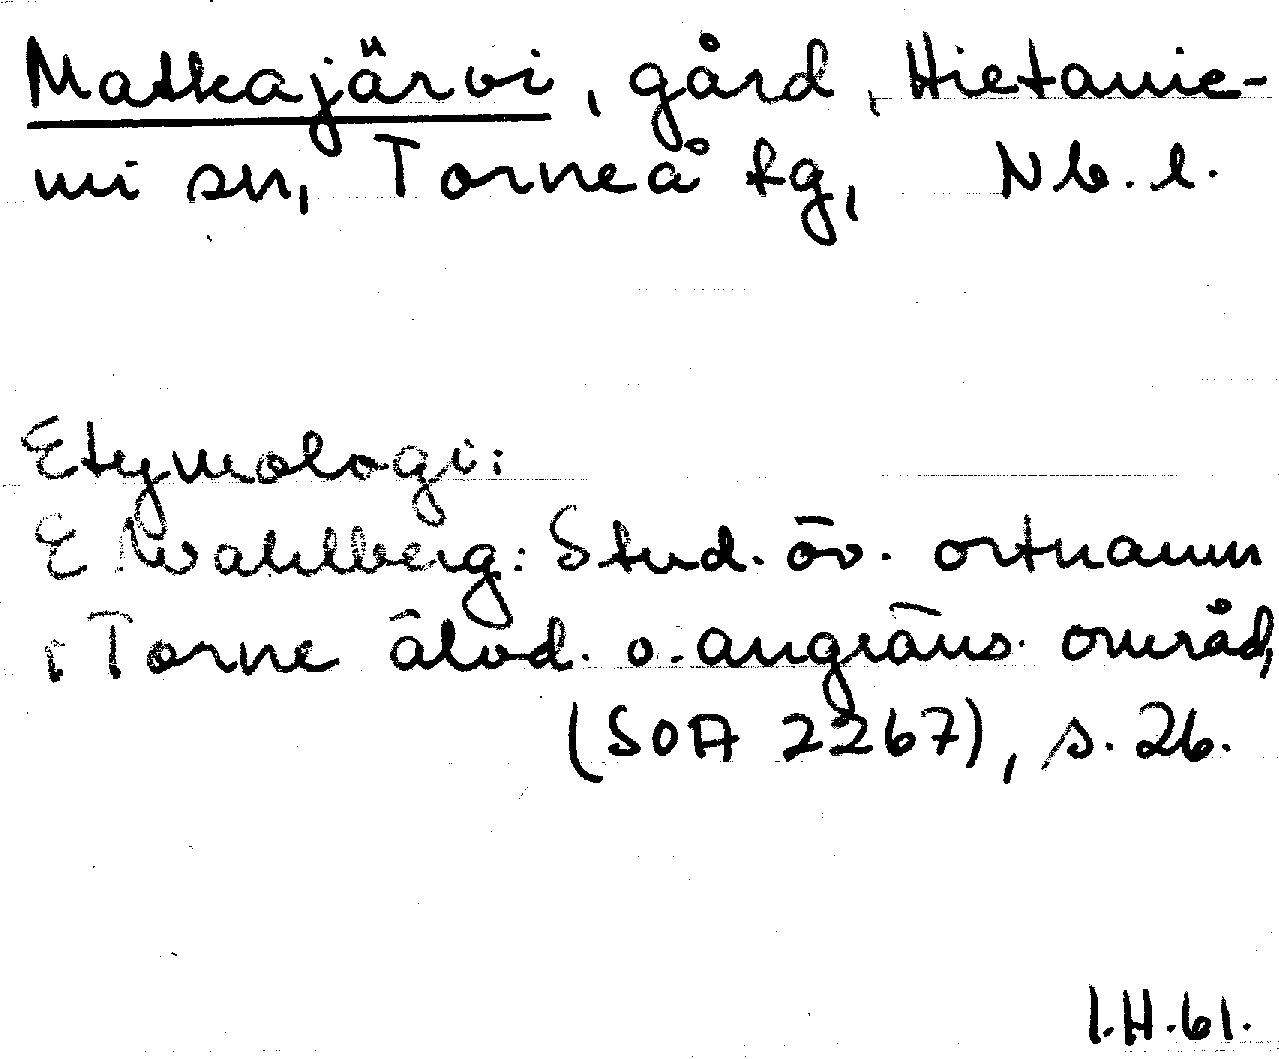 Matkajärvi, gård, Hietanie-
mi sn, Torneå tg, Nb. l.
Etymologi:
E Wahlberg: Stud. öv. ortnamn
i Torne älvd. o. angräns. områd,
(SOA 2267), s. 26.
I.H.61.